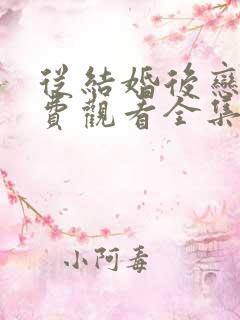 從結婚後戀
費觀看全集
小阿毒